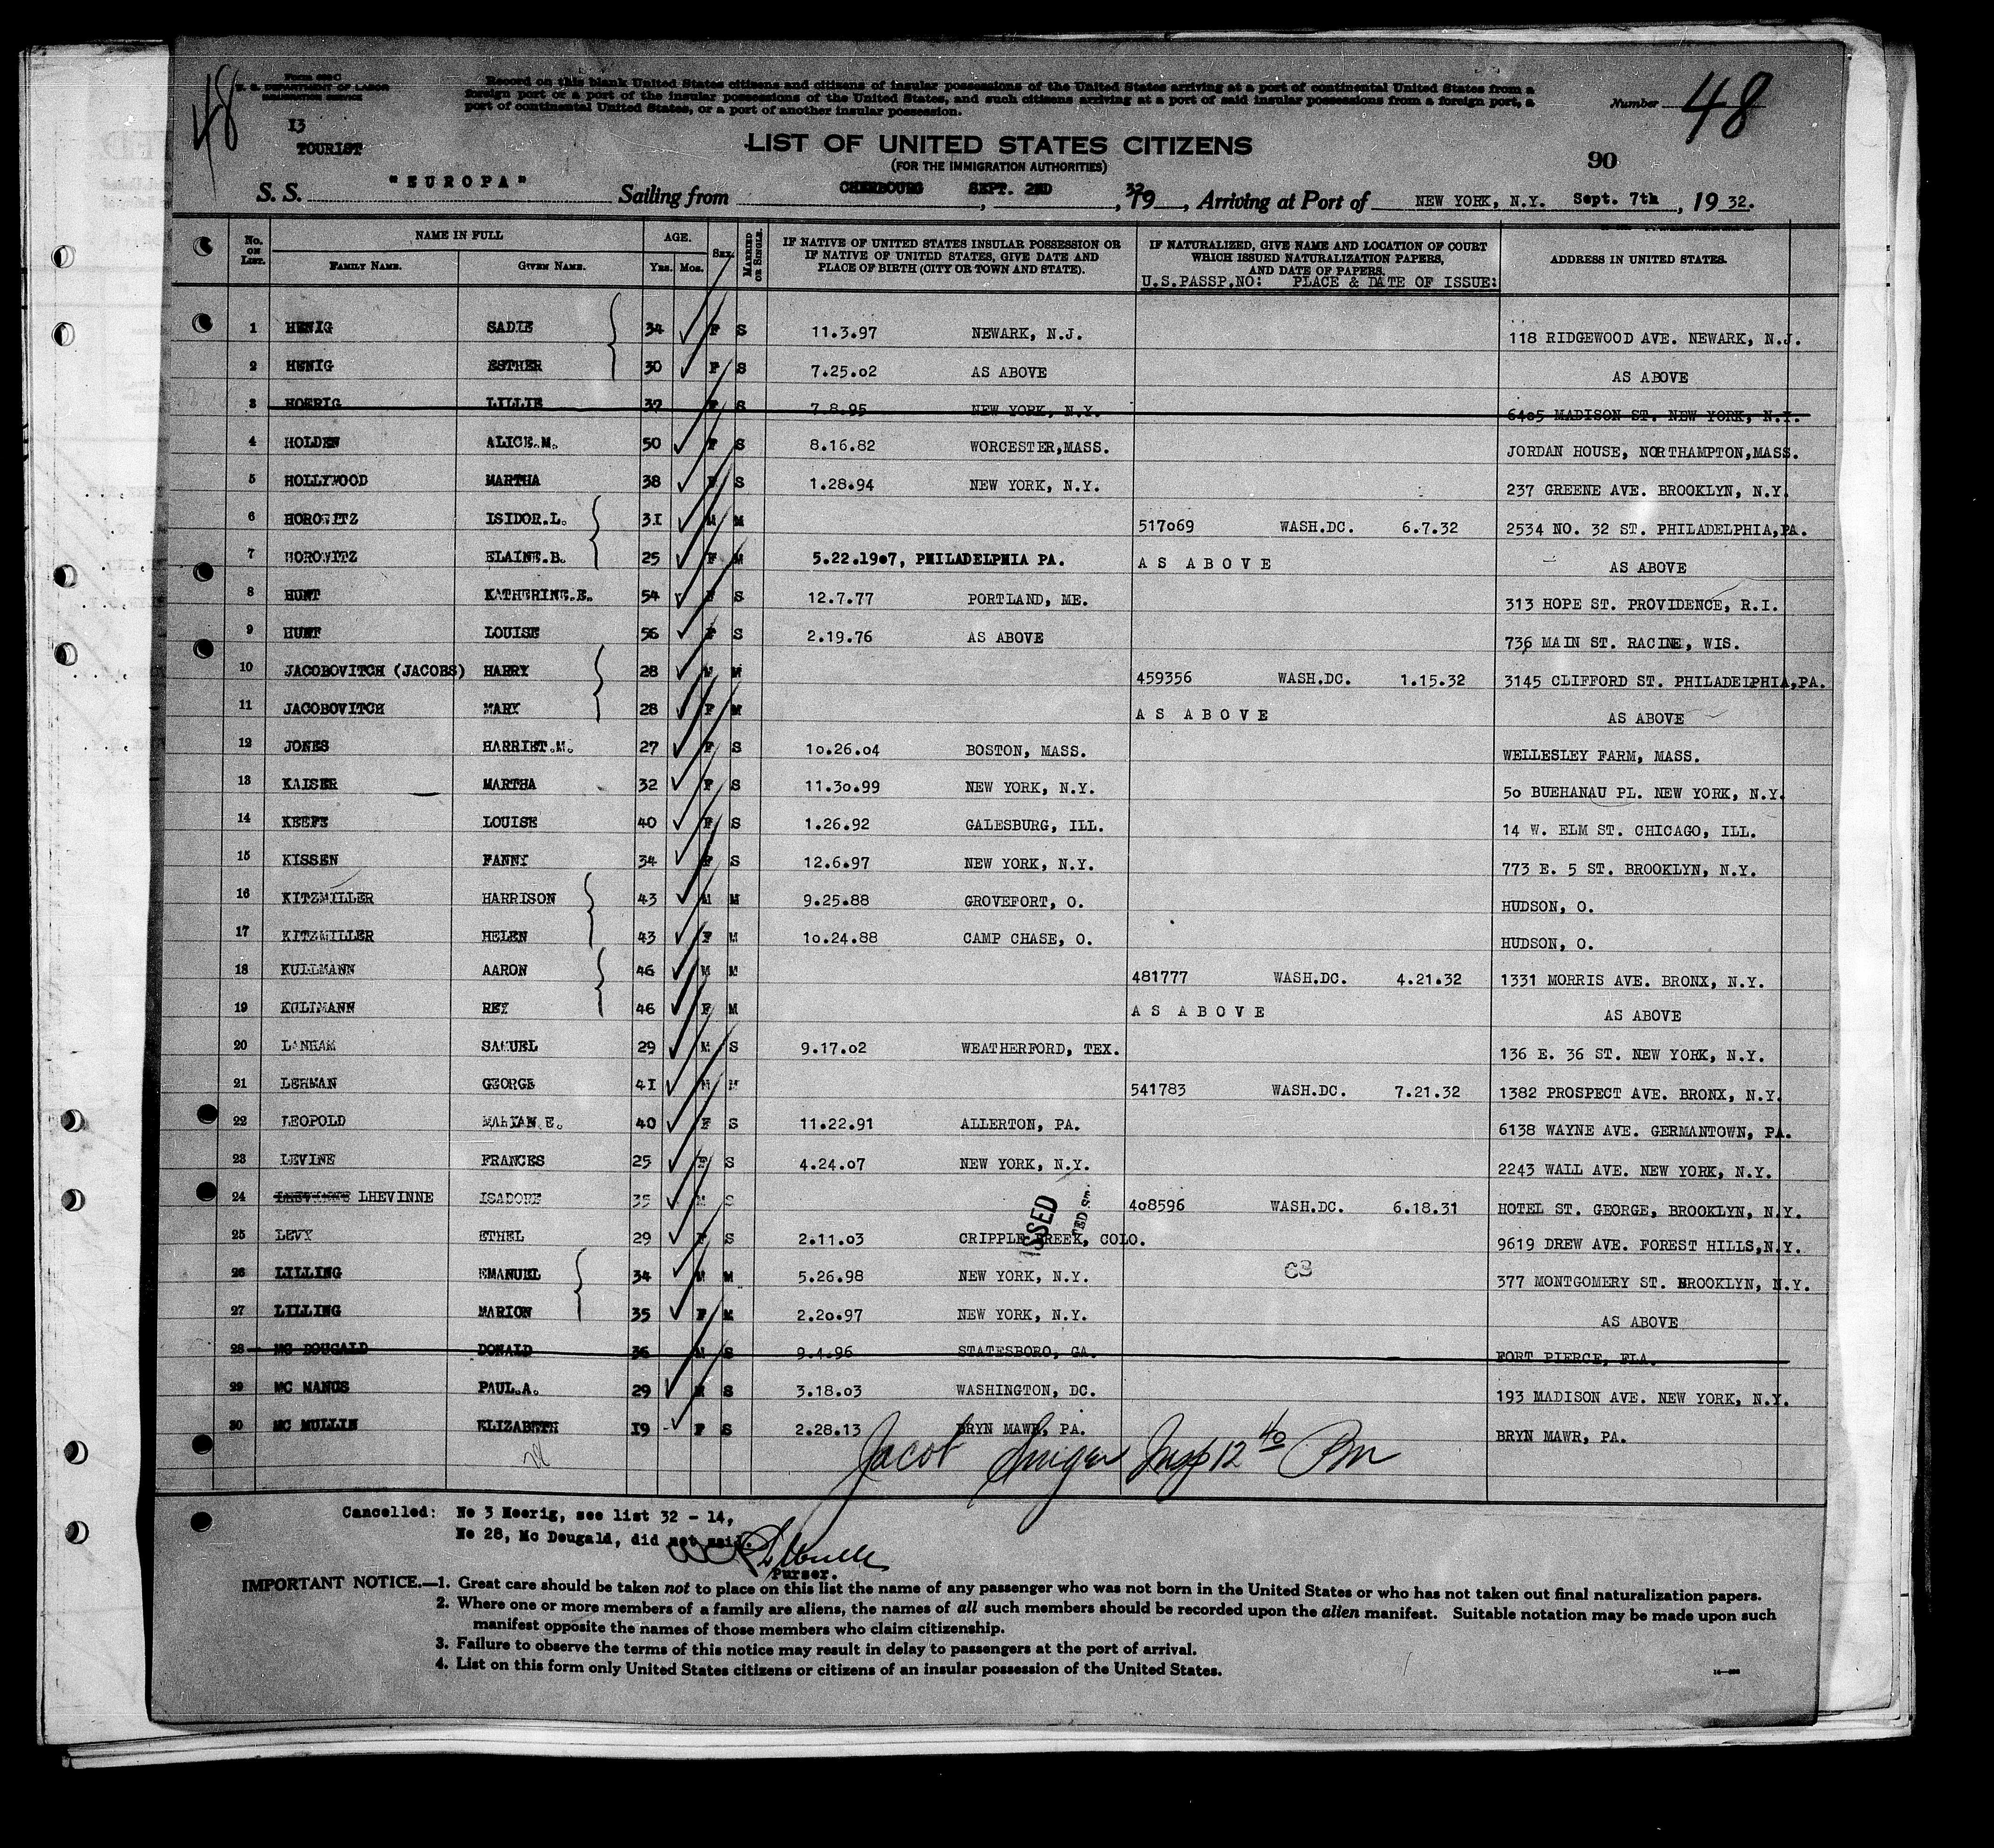 Form 630 C
U. S. DEPARTMENT OF LABOR
IMMIGRATION SERVICE
48
13
TOURIST
Record on this blank United States citizens and citizens of insular possessions of the United States arriving at a port of continental United States from a
foreign port or a port of the insular possessions of the United States, and such citizens arriving at a port of said insular possessions from a foreign port, a
port of continental United States, or a port of another insular possession.
Number 48
LIST OF UNITED STATES CITIZENS
(FOR THE IMMIGRATION AUTHORITIES)
90
S. S. "EUROPA" Sailing from CHERBOURG SEPT. 2ND, 1932, Arriving at Port of NEW YORK, N.Y. Sept. 7th, 1932.
No. ON LIST. NAME IN FULL FAMILY NAME. GIVEN NAME. AGE. YRS. MOS. SEX. MARRIED OR SINGLE. IF NATIVE OF UNITED STATES INSULAR POSSESSION OR IF NATIVE OF UNITED STATES, GIVE DATE AND PLACE OF BIRTH (CITY OR TOWN AND STATE). IF NATURALIZED, GIVE NAME AND LOCATION OF COURT WHICH ISSUED NATURALIZATION PAPERS, AND DATE OF PAPERS. U.S.PASSP.NO: PLACE & DATE OF ISSUE: ADDRESS IN UNITED STATES.
1 HENIG SADIE 34 F S 11.3.97 NEWARK, N.J. 118 RIDGEWOOD AVE. NEWARK, N.J.
2 HENIG ESTHER 30 F S 7.25.02 AS ABOVE AS ABOVE
3 HOERIG LILLIE 37 F S 7.8.95 NEW YORK, N.Y. 6405 MADISON ST. NEW YORK, N.Y.
4 HOLDEN ALICE.M. 50 F S 8.16.82 WORCESTER,MASS. JORDAN HOUSE, NORTHAMPTON,MASS.
5 HOLLYWOOD MARTHA 38 F S 1.28.94 NEW YORK, N.Y. 237 GREENE AVE. BROOKLYN, N.Y.
6 HOROWITZ ISIDOR.L. 31 M M 517069 WASH.DC. 6.7.32 2534 NO. 32 ST. PHILADELPHIA,PA.
7 HOROWITZ ELAINE.B. 25 F M 5.22.1907, PHILADELPHIA PA. AS ABOVE AS ABOVE
8 HUNT KATHERINE.E. 54 F S 12.7.77 PORTLAND, ME. 313 HOPE ST. PROVIDENCE, R.I.
9 HUNT LOUISE 56 F S 2.19.76 AS ABOVE 736 MAIN ST. RACINE, WIS.
10 JACOBOVITCH (JACOBS) HARRY 28 M M 459356 WASH.DC. 1.15.32 3145 CLIFFORD ST. PHILADELPHIA,PA.
11 JACOBOVITCH MARY 28 F M AS ABOVE AS ABOVE
12 JONES HARRIET.M. 27 F S 10.26.04 BOSTON, MASS. WELLESLEY FARM, MASS.
13 KAISER MARTHA 32 F S 11.30.99 NEW YORK, N.Y. 50 BUEHANAU PL. NEW YORK, N.Y.
14 KEEFE LOUISE 40 F S 1.26.92 GALESBURG, ILL. 14 W. ELM ST. CHICAGO, ILL.
15 KISSEN FANNY 34 F S 12.6.97 NEW YORK, N.Y. 773 E. 5 ST. BROOKLYN, N.Y.
16 KITZMILLER HARRISON 43 M M 9.25.88 GROVEFORT, O. HUDSON, O.
17 KITZMILLER HELEN 43 F M 10.24.88 CAMP CHASE, O. HUDSON, O.
18 KULLMANN AARON 46 M M 481777 WASH.DC. 4.21.32 1331 MORRIS AVE. BRONX, N.Y.
19 KULLMANN REY 46 F M AS ABOVE AS ABOVE
20 LANHAM SAMUEL 29 M S 9.17.02 WEATHERFORD, TEX. 136 E. 36 ST. NEW YORK, N.Y.
21 LEHMAN GEORGE 41 M M 541783 WASH.DC. 7.21.32 1382 PROSPECT AVE. BRONX, N.Y.
22 LEOPOLD MARIAN E. 40 F S 11.22.91 ALLERTON, PA. 6138 WAYNE AVE. GERMANTOWN, PA.
23 LEVINE FRANCES 25 F S 4.24.07 NEW YORK, N.Y. 2243 WALL AVE. NEW YORK, N.Y.
24 LHEVINNE ISADORE 35 M S 408596 WASH.DC. 6.18.31 HOTEL ST. GEORGE, BROOKLYN, N.Y.
25 LEVY ETHEL 29 F S 2.11.03 CRIPPLE CREEK, COLO. 9619 DREW AVE. FOREST HILLS,N.Y.
26 LILLING EMANUEL 34 M M 5.26.98 NEW YORK, N.Y. 377 MONTGOMERY ST. BROOKLYN, N.Y.
27 LILLING MARION 35 F M 2.20.97 NEW YORK, N.Y. AS ABOVE
28 MC DOUGALD DONALD 36 M S 9.4.96 STATESBORO, GA. FORT PIERCE, FLA.
29 MC MANUS PAUL.A. 29 M S 3.18.03 WASHINGTON, DC. 193 MADISON AVE. NEW YORK, N.Y.
30 MC MULLIN ELIZABETH 19 F S 2.28.13 BRYN MAWR, PA. BRYN MAWR, PA.
Jacob Insp 12 40 Pm
Cancelled: No 3 Hoerig, see list 32 - 14,
No 28, Mc Dougald, did not sail.
Purser.
IMPORTANT NOTICE.—1. Great care should be taken not to place on this list the name of any passenger who was not born in the United States or who has not taken out final naturalization papers.
2. Where one or more members of a family are aliens, the names of all such members should be recorded upon the alien manifest. Suitable notation may be made upon such
manifest opposite the names of those members who claim citizenship.
3. Failure to observe the terms of this notice may result in delay to passengers at the port of arrival.
4. List on this form only United States citizens or citizens of an insular possession of the United States.